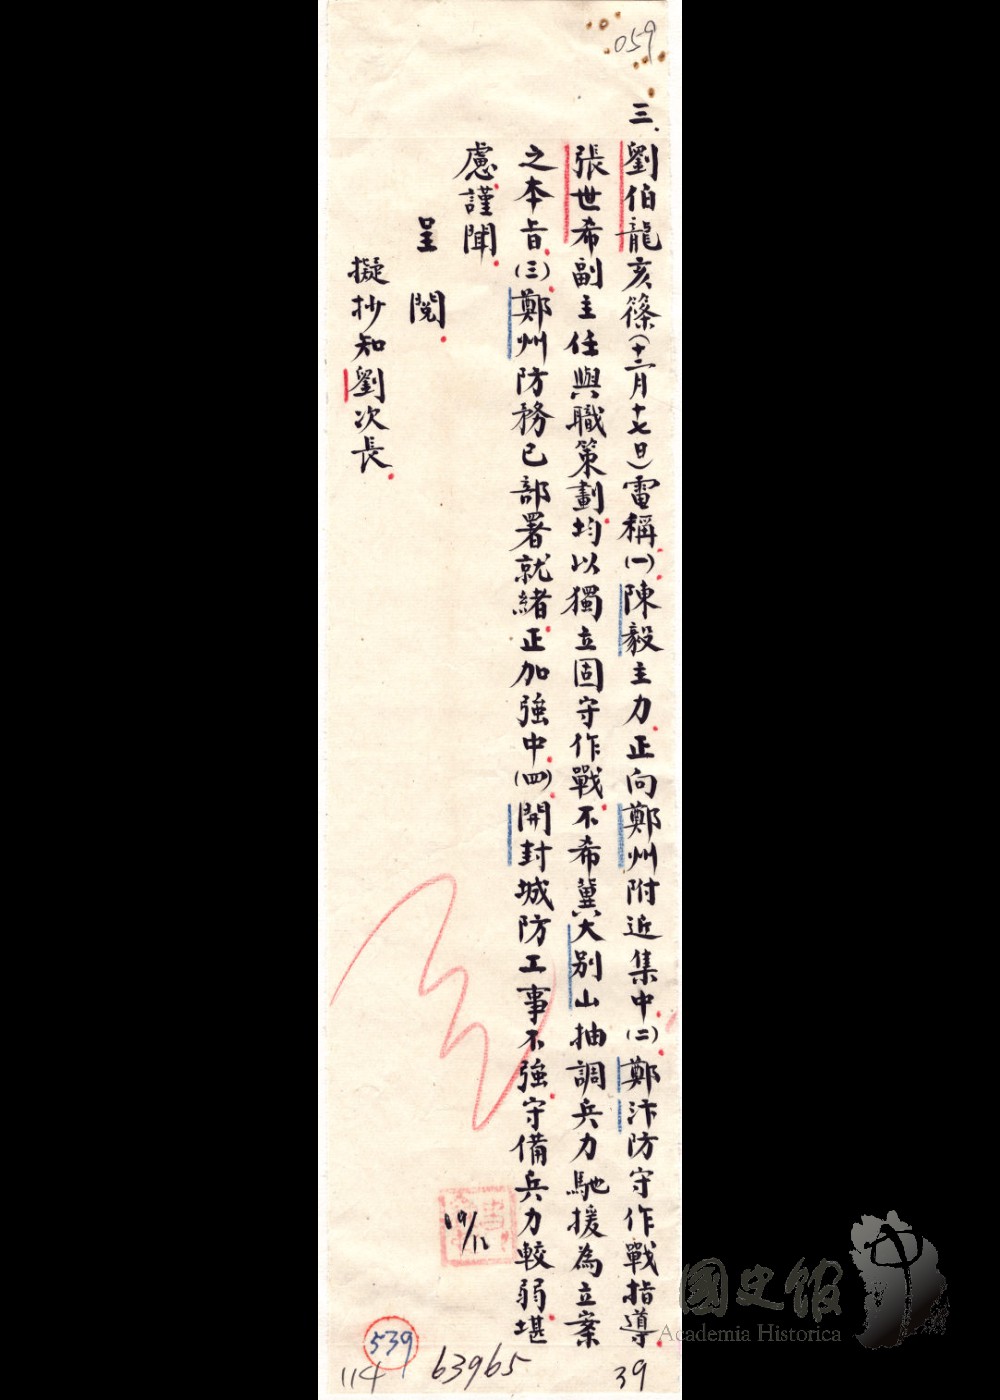 059
三、劉伯龍亥篠(十二月十七日)電稱(一)陳毅主力正向鄭州附近集中(二)鄭汴防守作戰指導
張世希副主任與職策劃均以獨立固守作戰不希冀大別山抽調兵力馳援為立案
之本旨(三)鄭州防務已部署就緒正加強中(四)開封城防工事不強守備兵力較弱堪
慮謹聞
呈閱
擬抄知劉次長
19/12
539
114
63965
39
國史館
Academia Historica